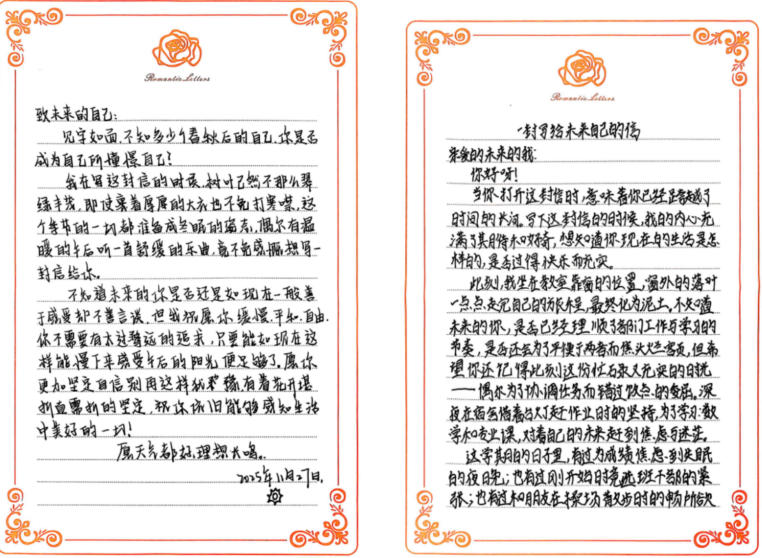 Romantic Letters
致未来的自己:
见字如面,不知多少个春秋后的自己,你是否
成为自己所憧憬自己?
我在写这封信的时候,树叶已然不那么翠
绿丰茂,即使裹着厚厚的大衣也不免打寒噤,这
个季节的一切都准备成冬眠的姿态,偶尔有温
暖的午后听一首舒缓的乐曲,竟不免感慨想写一
封信给你。
不知道未来的你是否还是如现在一般善
于感受却不善言谈,但我祝愿你缓慢、平和、自由.
你不需要有太过替远的追求,只要能如现在这
样能慢下来感受午后的阳光便足够了。愿你
更加坚定自信,别用这样
的坚定,祝你依旧能够感知生活
中美好的一切!
愿天气都好,理想长鸣。
2025年11月27日.
Romantic Letters
一封写给未来自己的信
亲爱的未来的我:
你好呀!
当你打开这封信时,意味着你已经跨越了
时间的长河。写下这封信的时候,我的内心充
满了期待和好奇,想知道你现在的生活是怎
样的,是否过得快乐而充实。
此刻,我坐在教室靠窗的位置,窗外的落叶
一点点走完自己的旅程,最终化为泥土。不知道
未来的你,是否已经理顺了部门工作与学习的
节奏,是否还会为了平衡于两者而焦头烂额,但希
望你还记得此刻这份忙碌又充实的日常
——偶尔为了协调任务而错过饭点的夜晚。深
夜在宿舍借着台灯赶作业时的坚持,为了学习数
学和专业课,对着自己的未来感到焦虑与迷茫。
这学期的日子里,有过为成绩焦虑到失眠
的夜晚;也有过刚开始时竞选班干部的紧
张;也有过和朋友在操场散步时的畅所欲